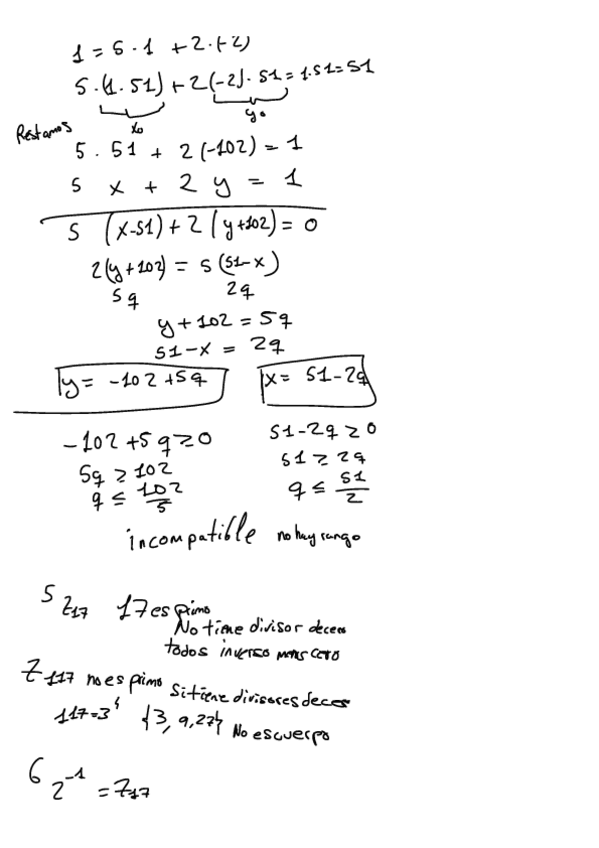 1 = 5 · 1 + 2 · (-2)
5 · (1 · 51) + 2 (-2) · 51 = 1 · 51 = 51
x₀ y₀
Restamos
5 · 51 + 2 (-102) = 1
5 x + 2 y = 1
5 (x-51) + 2 (y+102) = 0
2(y+102) = 5 (51-x)
5q 2q
y + 102 = 5q
51 - x = 2q
y = -102 + 5q x = 51 - 2q
-102 + 5q ≥ 0 51 - 2q ≥ 0
5q ≥ 102 51 ≥ 2q
q ≤ 102/5 q ≤ 51/2
incompatible no hay rango
5 Z₁₇ 17 es primo
No tiene divisor de cero
todos inverso menos cero
Z₁₁₇ no es primo Si tiene divisores de cero
117=3⁴ {3, 9, 27} No es cuerpo
6 2⁻¹ = Z₁₇